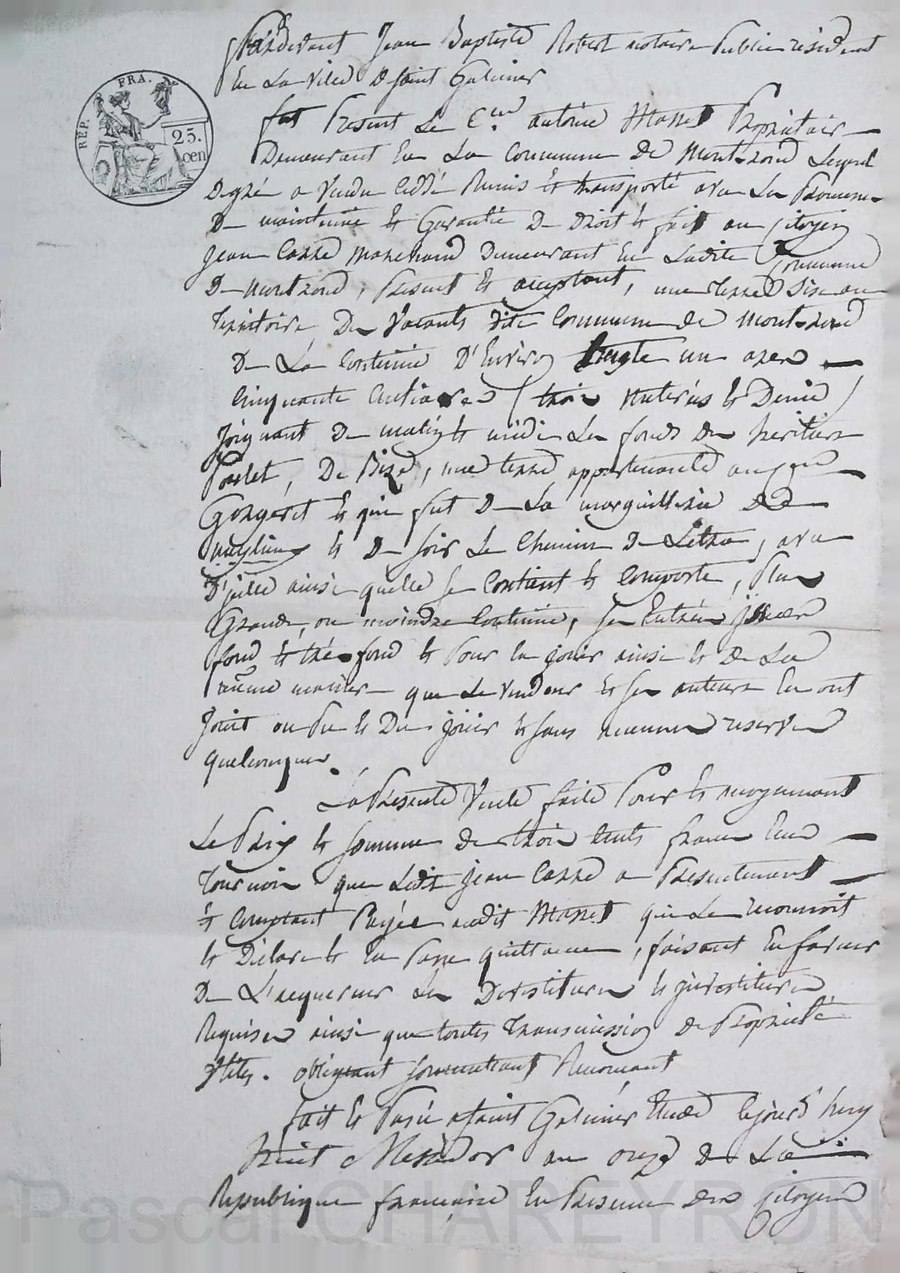 REP. FRA.
25. cen
Pardevant Jean Baptiste Robert notaire Public résident
En La ville De Saint Galmier
fut Present Le C.en antoine Masset Propriétaire
Demeurant En La Commune De Montrond Lequel
De gré a vendu cédé Remis et transporté avec La Promesse
De maintenue et Garantie De Droit et fait au Citoyen
Jean Carré Marchand Demeurant En Ladite Commune
De montrond, Présent et acceptant, une Terre Sise au
Territoire Des Vacants dite Commune de Montrond
De La Contenue D'Environ un ares
Cinquante Centiares (trois et Demie)
Joignant De matin et midi Les fonds des heritiers
De Bize, une terre appartenante
et qui fut De La marguillerie De
et De soir Le Chemin De
ainsi quelle se Contient et Comporte, Plus
Grande, ou moindre Contenue, ses Entrées
fond et tréfond et Pour En jouir ainsi et De La
même manière que Le vendeur et ses auteurs En ont
Jouit ou Pu et Du jouir et sans aucunes reserves
quelconques.
La Présente Vente faite Pour et moyennant
Le Prix et somme de trois Cents francs
Tournois que Ledit Jean Carré a Présentement
et Comptant Payée audit Masset qui Le reconnoit
et Déclare et En Passe quittance, faisant En faveur
De L'acquereur Les Devestitures et investitures
Requises ainsi que toutes Transmission de Propriété
Utiles. obligeant soumettant Renonçant
fait et Passé a Saint Galmier Etude Le jourd'huy
huit Messidor an onze De La
Republique française En Présence des Citoyens
Pascal CHAREYRON